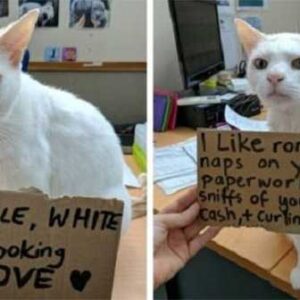 LE, WHITE
ooking
OVE ♥
I Like
naps on
paperwor
sniffs of
cash, + curlin